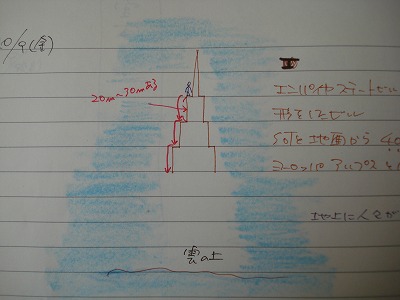 0/9(金)
20m~30mある
エンパイヤステートビル
形をビル
地面から 40
ヨーロッパアルプスと
地上に人々が
雲の上